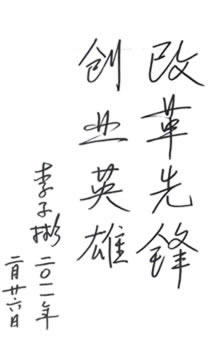 改革先锋
创业英雄
李子彬
二〇一一年
二月廿六日